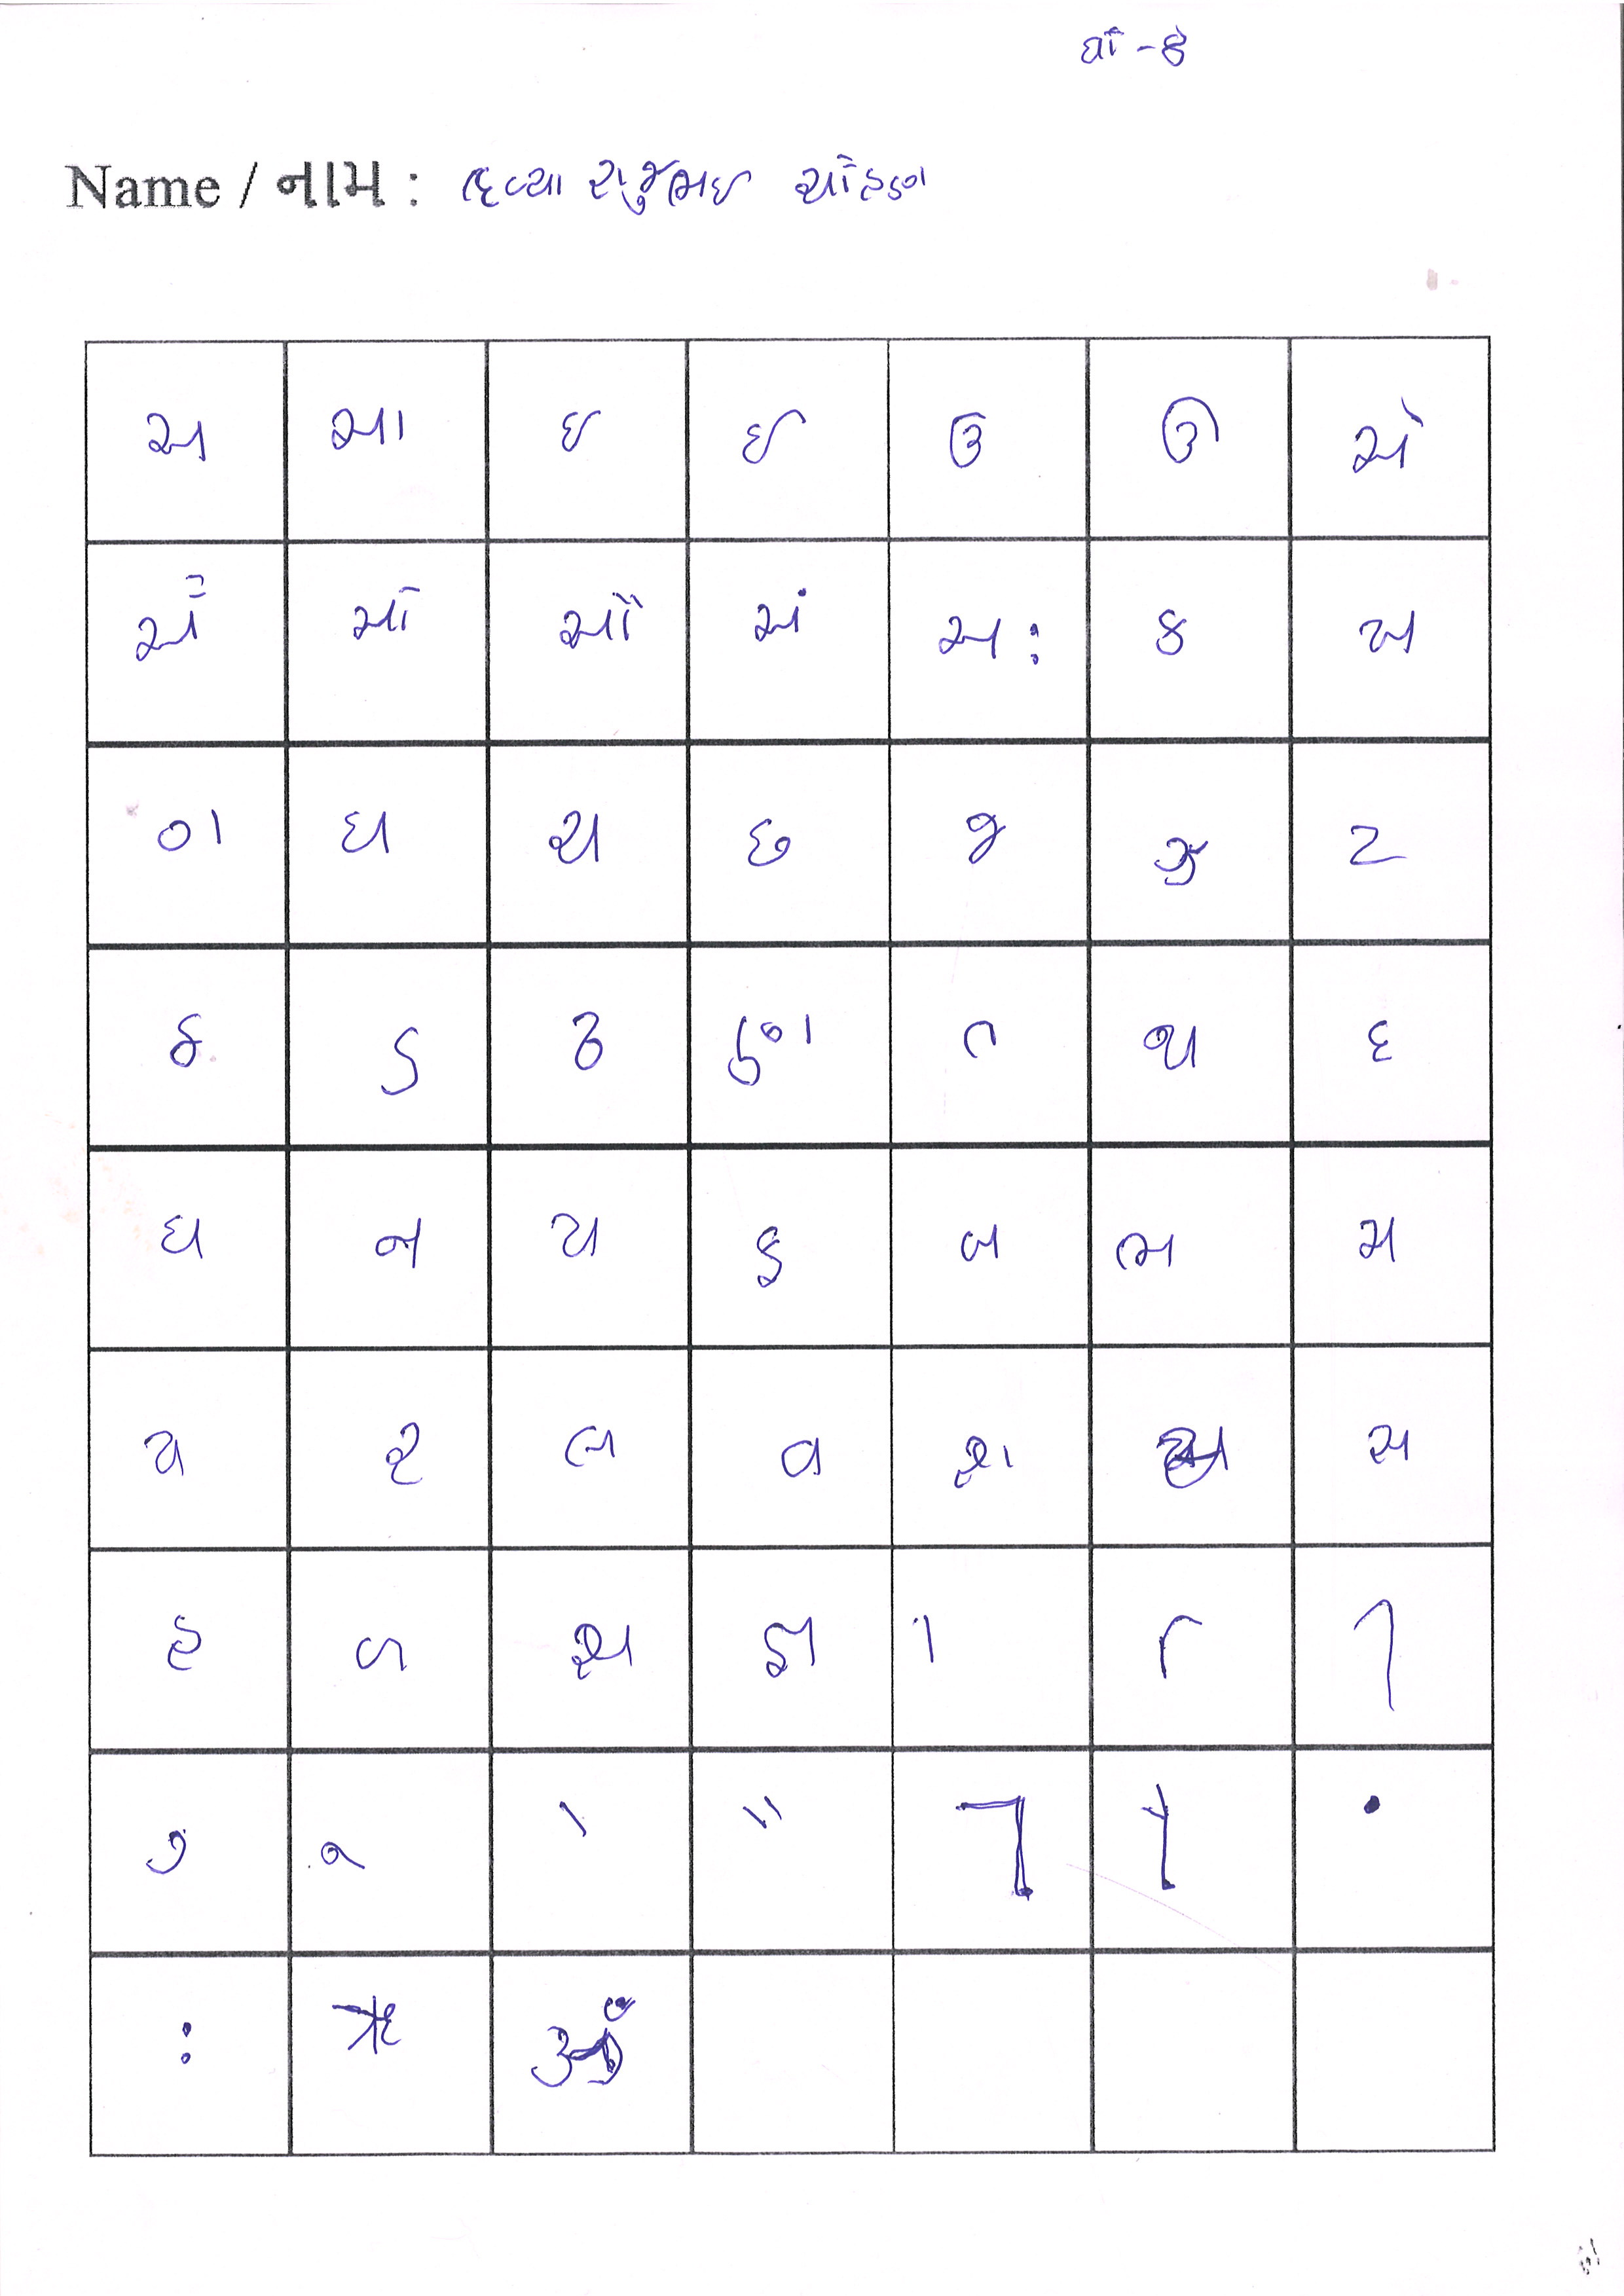 ધો - ૬
Name / નામ : દિવ્યા રાજુભાઈ ચૌહાણ
અ આ ઇ ઈ ઉ ઊ એ
ઐ ઓ ઔ અં અઃ ક ખ
ગ ઘ ચ છ જ ઝ ટ
ઠ ડ ઢ ણ ત થ દ
ધ ન પ ફ બ ભ મ
ય ર લ વ શ ષ સ
હ ળ ક્ષ જ્ઞ ા િ ી
ુ ૂ ે ૈ ો ૌ ં
ઃ ઋ ૐ